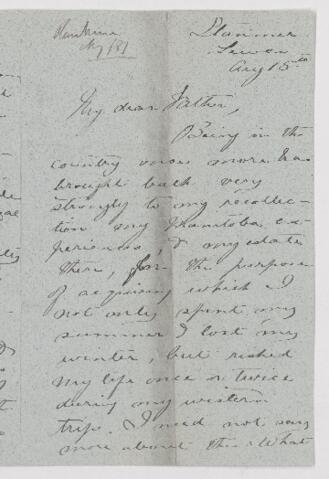 Aug/81
Steamer
Aug 15th
My dear Father,
Being in the
country once more has
brought back very
strongly to my recollec-
tion my Manitoba ex-
periences, & my estate
there, for the purpose
of acquiring which I
not only spent my
summer & lost my
winter, but risked
my life once or twice
during my western
trip. I need not say
more about this. What